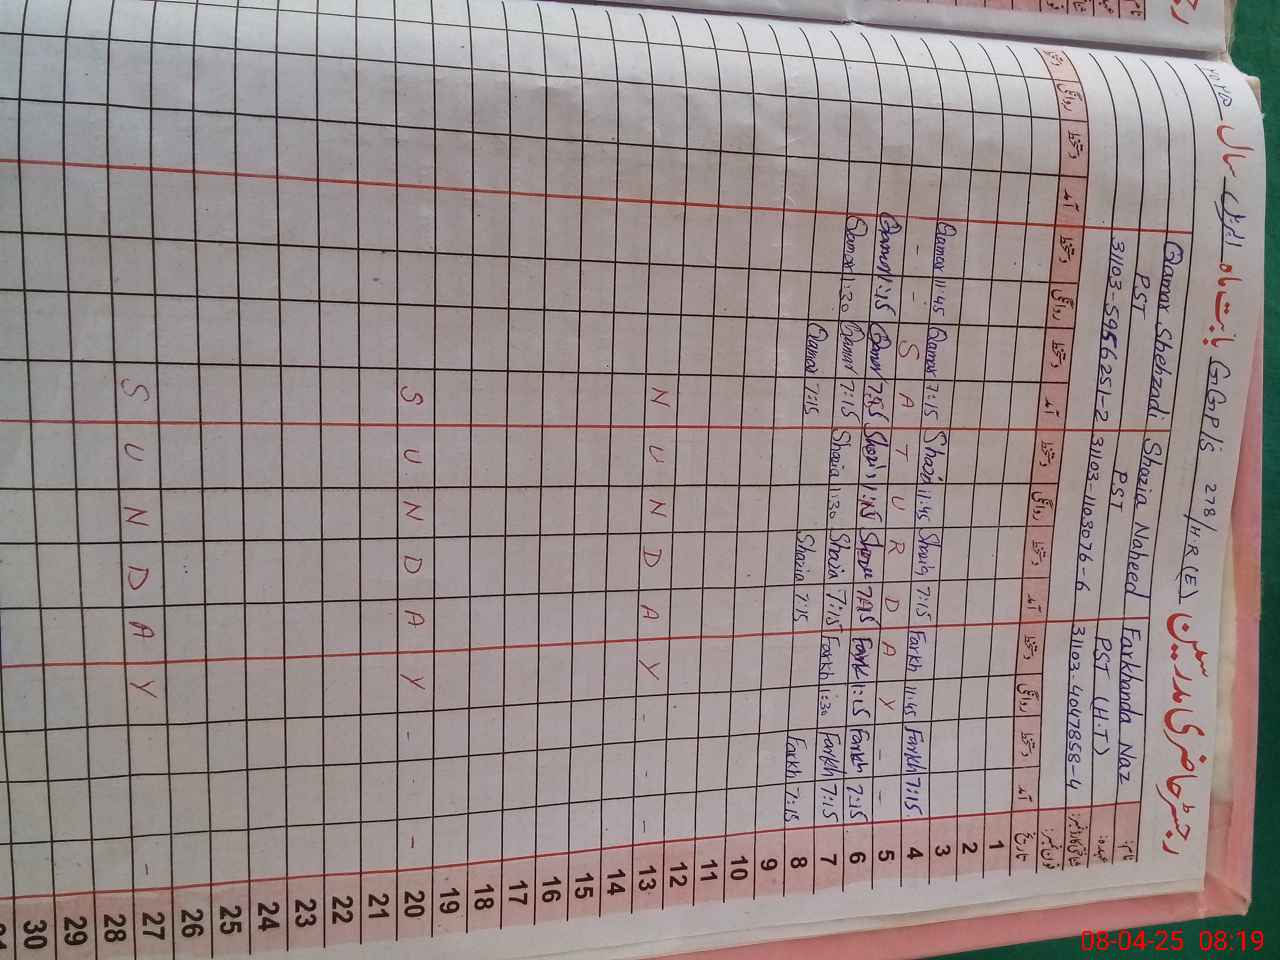 رجسٹر حاضری مدرسین GGP/S 278/H.R(E) بابت ماہ اپریل سال ۲۰۲۵
Qamar Shehzadi Shazia Naheed Farkhanda Naz نام
PST PST PST (H.T) عہدہ
31103-5956251-2 31103-1103076-6 31103-4047858-4 شناختی کارڈ نمبر
فون نمبر
دستخط روانگی دستخط آمد دستخط روانگی دستخط آمد دستخط روانگی دستخط آمد دستخط روانگی دستخط آمد تاریخ
1
2
3
Qamar 11:45 Qamar 7:15 Shazia 11:45 Shazia 7:15 Farkh 11:45 Farkh 7:15 4
- - S A T U R D A Y - - 5
Qamar 1:15 Qamar 7:15 Shazia 1:15 Shazia 7:15 Farkh 1:15 Farkh 7:15 6
Qamar 1:30 Qamar 7:15 Shazia 1:30 Shazia 7:15 Farkh 1:30 Farkh 7:15 7
Qamar 7:15 Shazia 7:15 Farkh 7:15 8
9
10
11
12
N U N D A Y - - - 13
14
15
16
17
18
19
S U N D A Y - - 20
21
22
23
24
25
26
S U N D A Y - 27
28
29
30
08-04-25 08:19